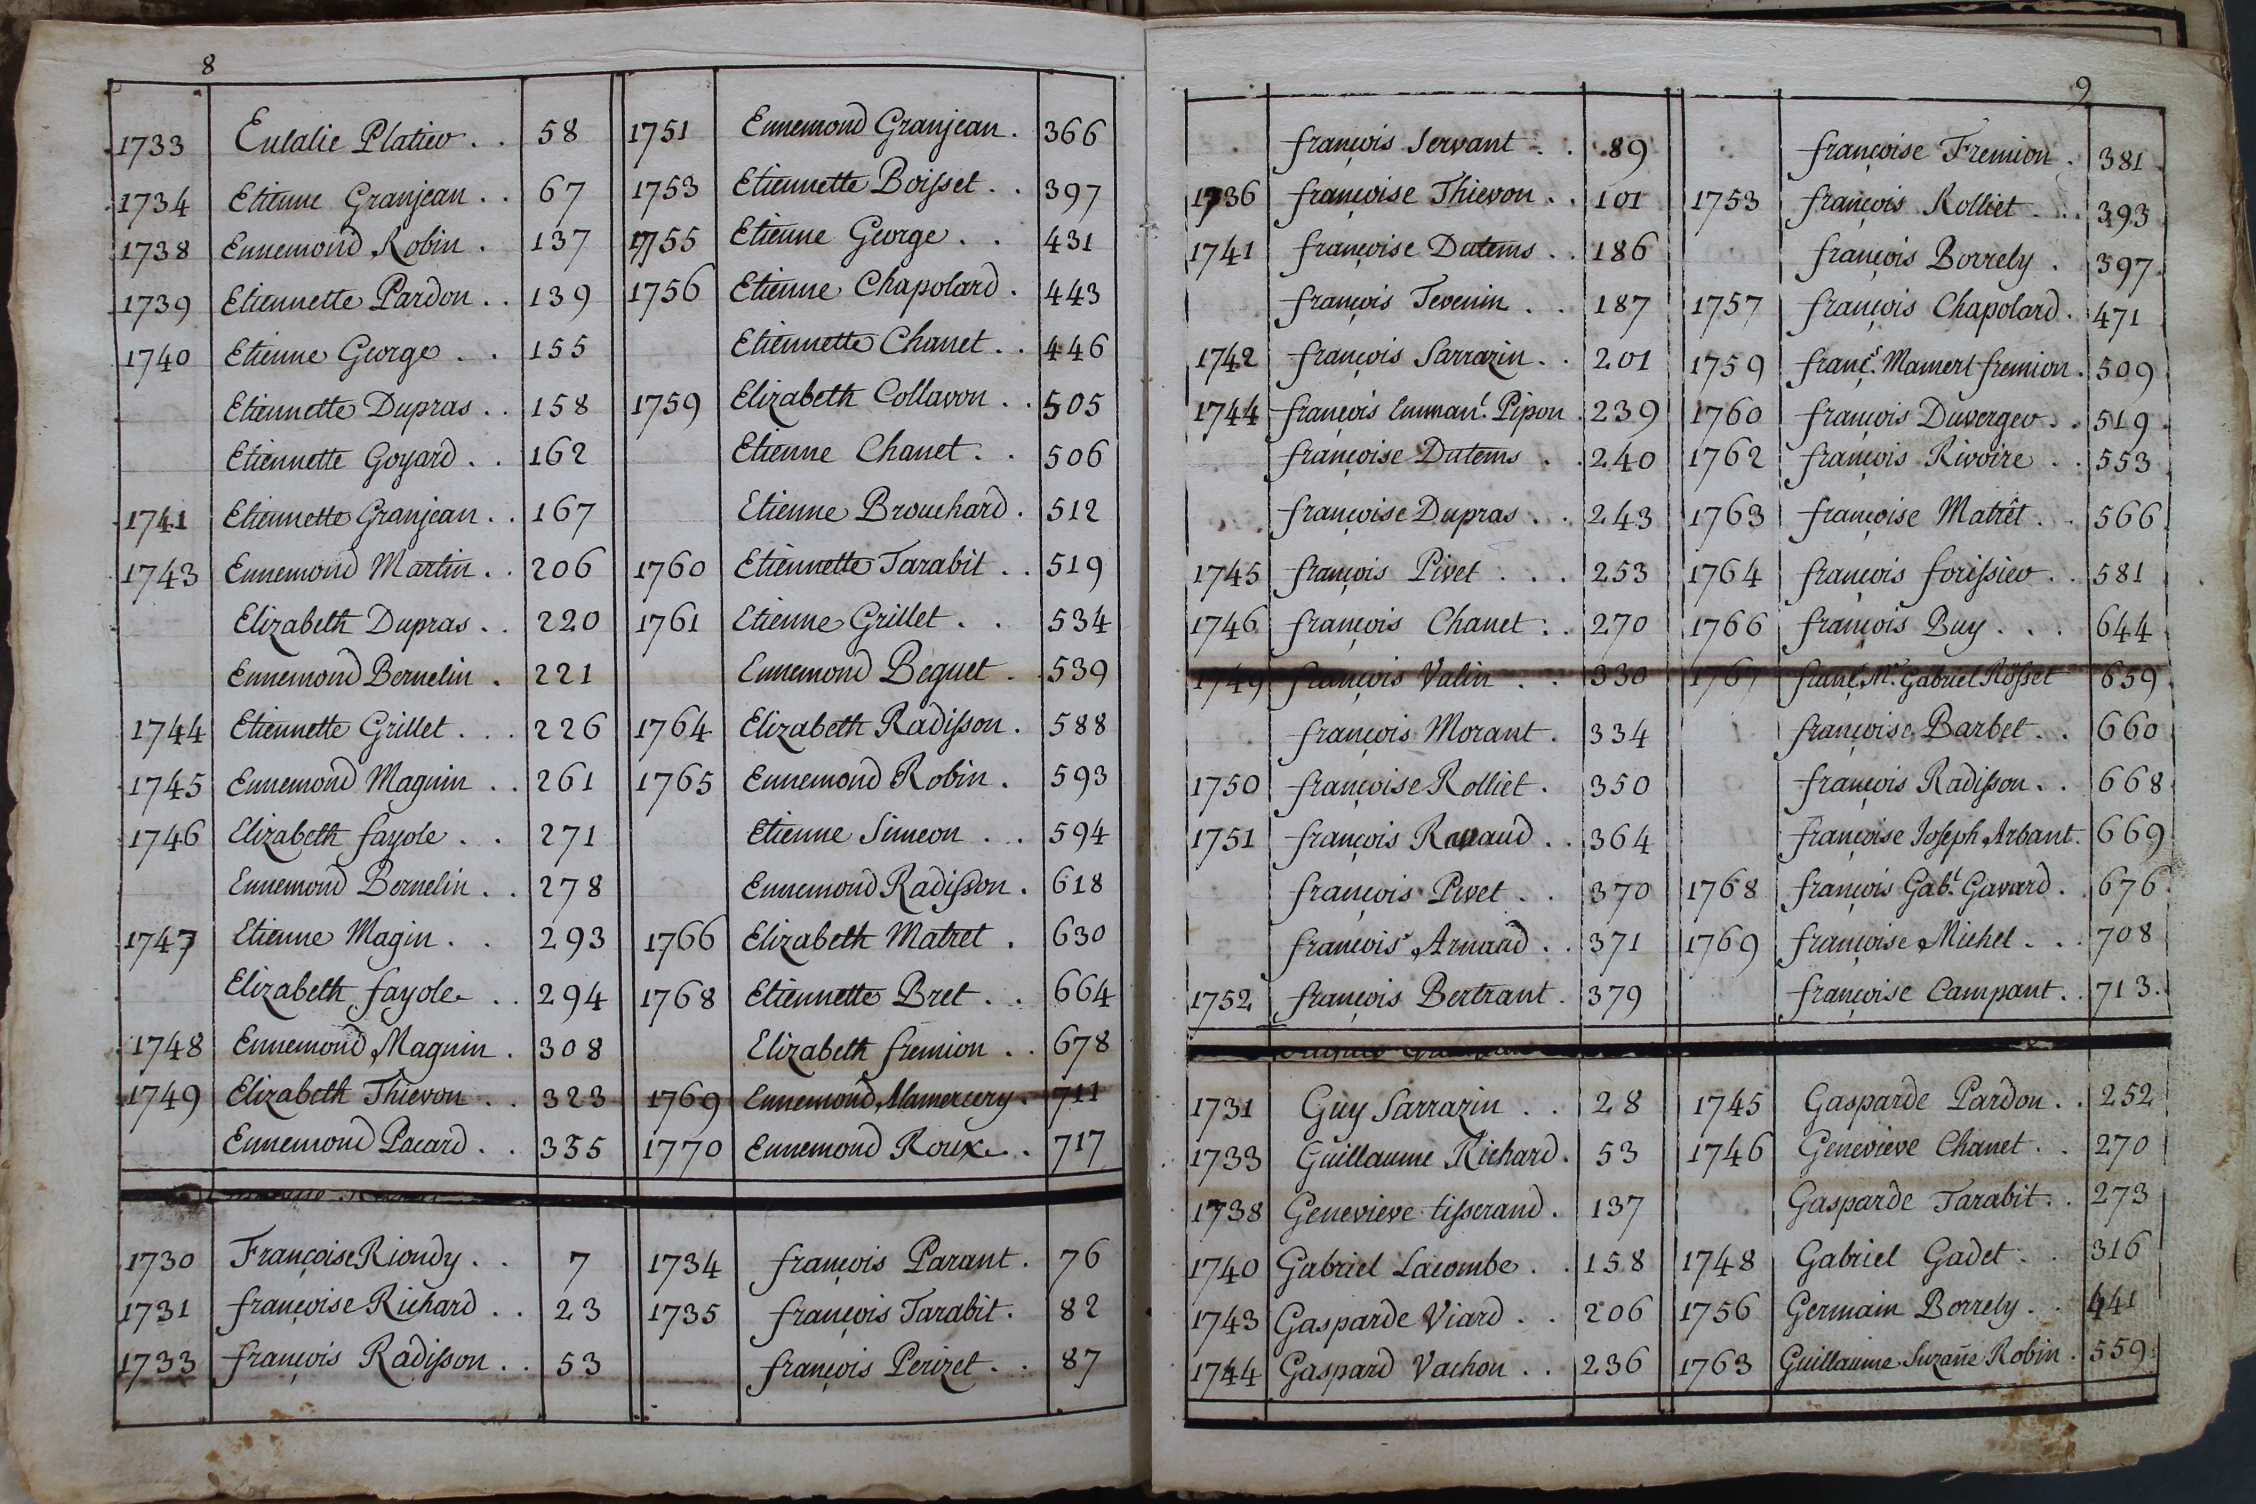 8
1733 Eulalie Platier . . 58
1734 Etienne Granjean . . 67
1738 Ennemond Robin . 137
1739 Etiennette Pardon . . 139
1740 Etienne George . . 155
Etiennette Dupras . . 158
Etiennette Goyard . . 162
1741 Etiennette Granjean . . 167
1743 Ennemond Martin . . 206
Elizabeth Dupras . . 220
Ennemond Bernelin . 221
1744 Etiennette Grillet . . . 226
1745 Ennemond Magnin . . 261
1746 Elizabeth fayole . . 271
Ennemond Bernelin . . 278
1747 Etienne Magin . . 293
Elizabeth fayole . . 294
1748 Ennemond Magnin . 308
1749 Elizabeth Thievon . . 323
Ennemond Pacard . . 335
1751 Ennemond Granjean . 366
1753 Etiennette Boisset . . 397
1755 Etienne George . . 431
1756 Etienne Chapolard . 443
Etiennette Chanet . . 446
1759 Elizabeth Collavon . . 505
Etienne Chanet . . 506
Etienne Brouchard . 512
1760 Etiennette Tarabit . . 519
1761 Etienne Grillet . . 534
Ennemond Beguet . . 539
1764 Elizabeth Radisson . 588
1765 Ennemond Robin . 593
Etienne Simeon . . 594
Ennemond Radisson . 618
1766 Elizabeth Matret . 630
1768 Etiennette Bret . . 664
Elizabeth fremion . . 678
1769 Ennemond Mamercery . 711
1770 Ennemond Roux . . 717
1730 Françoise Rioudy . . 7
1731 françoise Richard . . 23
1733 françois Radisson . . 53
1734 françois Parant . 76
1735 françois Tarabit . 82
françois Perizet . . 87
9
françois Servant . . 89
1736 françoise Thievon . . 101
1741 françoise Dutems . . 186
françois Tevenin . . 187
1742 françois Sarrazin . . 201
1744 françois Emman.l Pipon . 239
françoise Dutems . . 240
françoise Dupras . . 243
1745 françois Pivet . . . 253
1746 françois Chanet . . 270
1749 françois Valin . . 330
françois Morant . 334
1750 françoise Rolliet . 350
1751 françois Ravaud . . 364
françois Pivet . . 370
françois Arnaud . . 371
1752 françois Bertrant . 379
françoise Fremion . 381
1753 françois Rolliet . . . 393
françois Borrely . 397
1757 françois Chapolard . 471
1759 franç.s Mamert fremion . 509
1760 françois Duverger . . 519
1762 françois Rivoire . . 553
1763 françoise Matrêt . . 566
1764 françois forissier . . 581
1766 françois Buy . . . 644
1767 franç. M.e Gabriel Rosset 659
françoise Barbet . . 660
françois Radisson . . 668
françoise Joseph Arbant . 669
1768 françois Gab.l Gavard . . 676
1769 françoise Michel . . . 708
françoise Campant . . 713
1731 Guy Sarrazin . . 28
1733 Guillaume Richard . 53
1738 Genevieve tisserand . 137
1740 Gabriel Lacombe . . 158
1743 Gasparde Viard . . 206
1744 Gaspard Vachon . . 236
1745 Gasparde Pardon . . 252
1746 Genevieve Chanet . . 270
Gasparde Tarabit . . 273
1748 Gabriel Gadet . . 316
1756 Germain Borrely . . 441
1763 Guillaume Suzañe Robin . 559